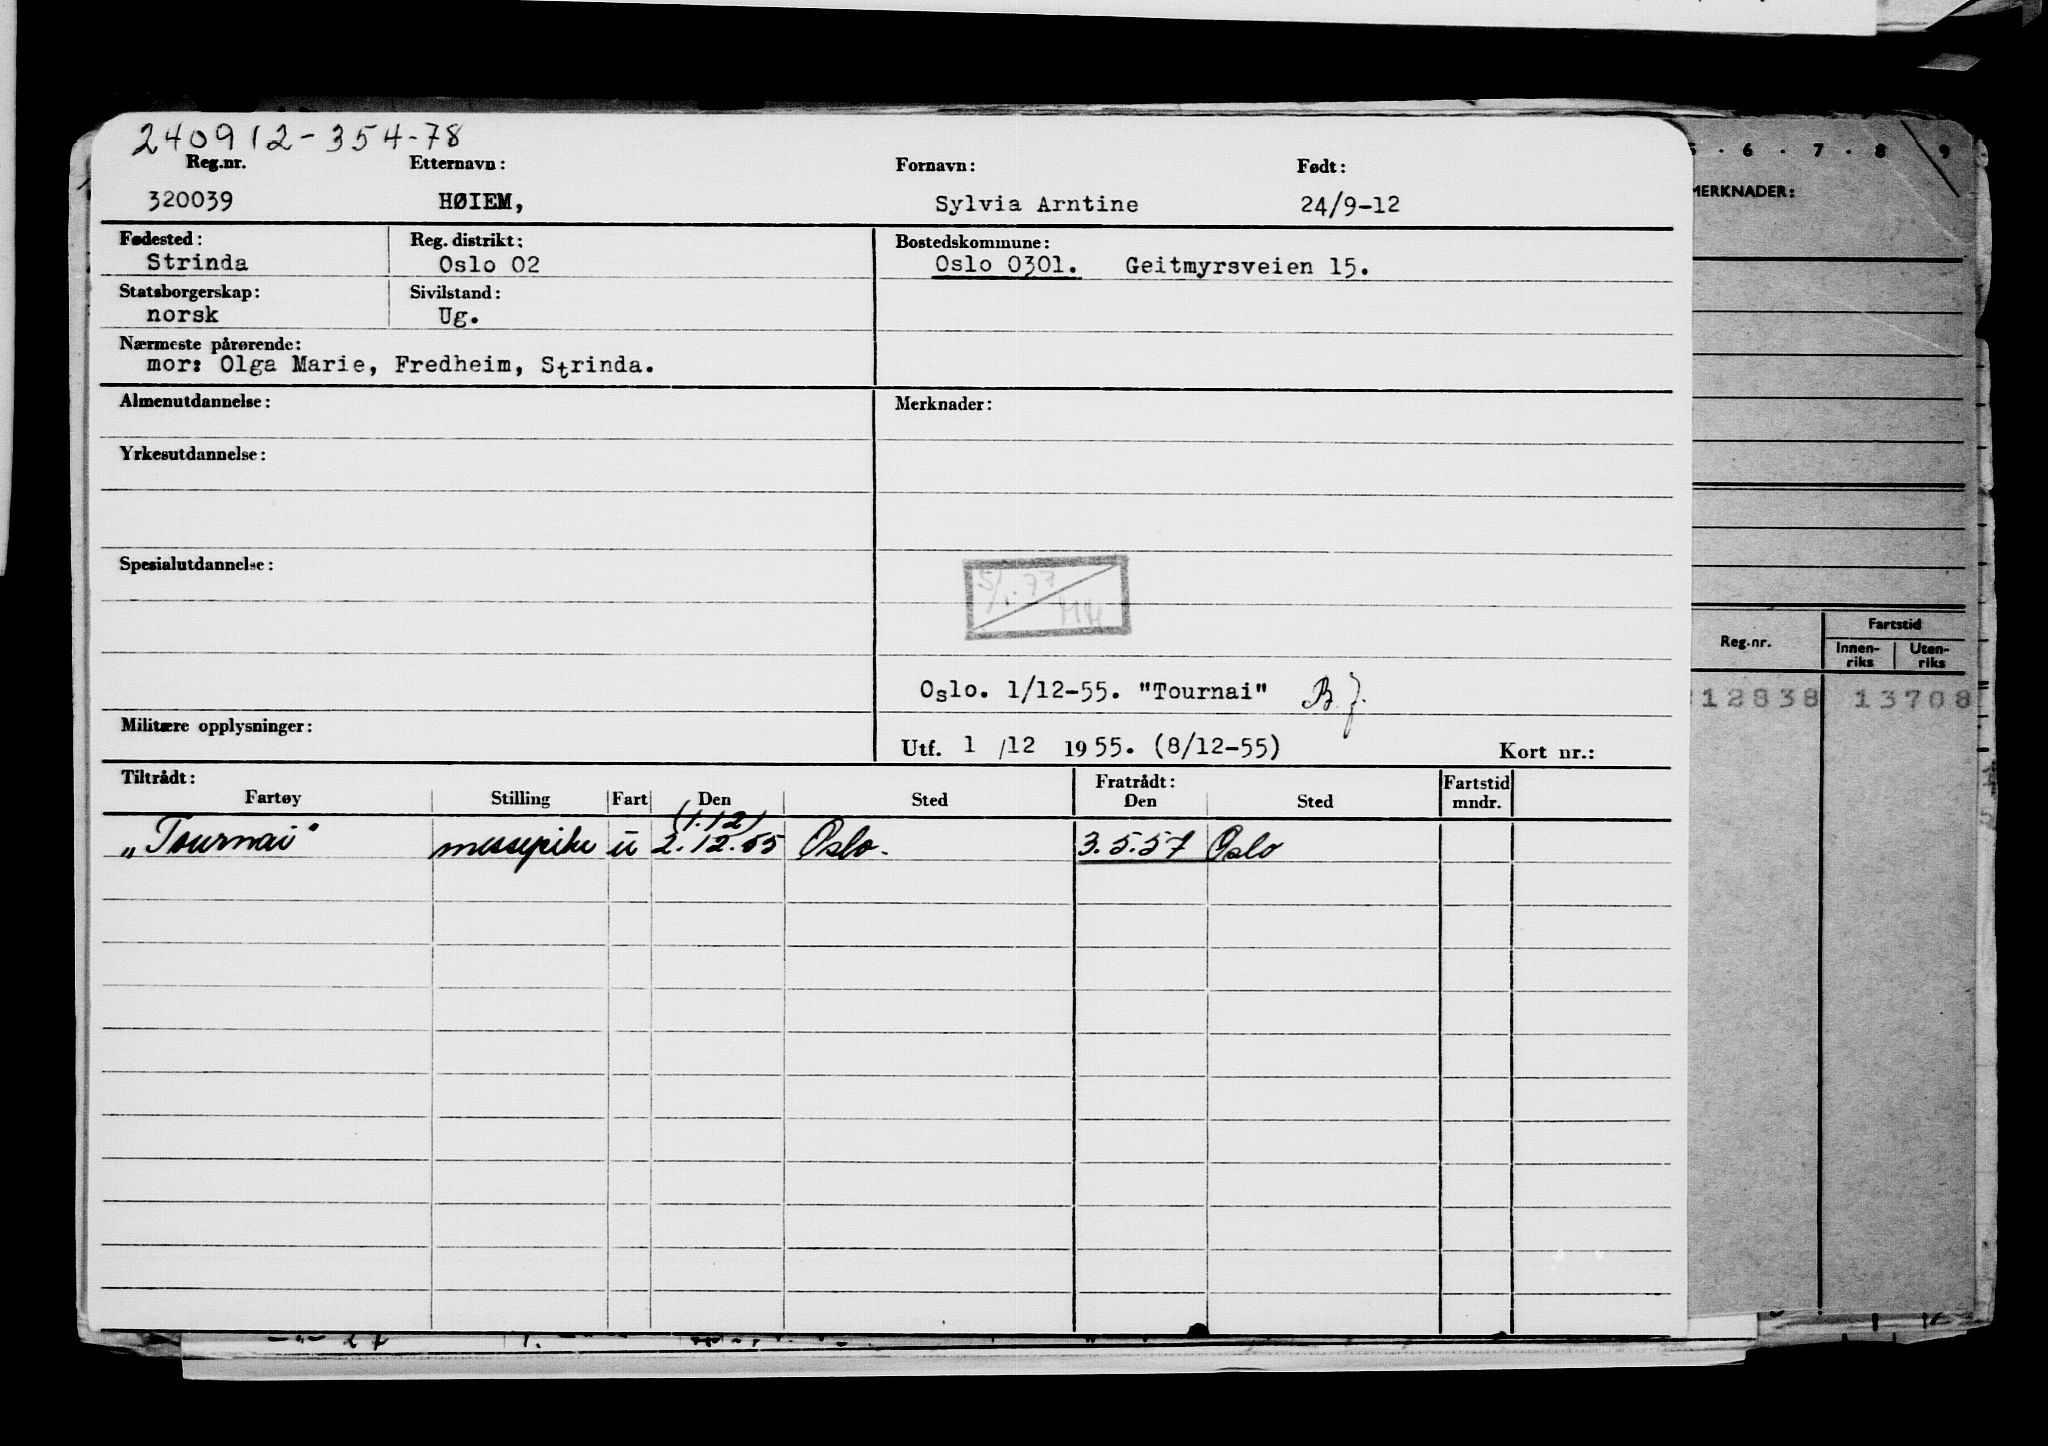 240912-354-78
Reg.nr. Etternavn: Fornavn: Født:
320039 HØIEM, Sylvia Arntine 24/9-12
Fødested: Reg. distrikt: Bostedskommune:
Strinda Oslo 02 Oslo 0301. Geitmyrsveien 15.
Statsborgerskap: Sivilstand:
norsk Ug.
Nærmeste pårørende:
mor: Olga Marie, Fredheim, Strinda.
Almenutdannelse: Merknader:
Yrkesutdannelse:
Spesialutdannelse:
5/1.77
Oslo. 1/12-55. "Tournai" B.J.
Militære opplysninger:
Utf. 1 /12 1955. (8/12-55) Kort nr.:
Tiltrådt: Fratrådt: Fartstid
Fartøy Stilling Fart Den Sted Den Sted mndr.
(1.12)
„Tournai" messepike u 2.12.55 Oslo. 3.5.57 Oslo
6 . 7 . 8 9
MERKNADER:
Fartstid
Reg.nr. Innen-riks Uten-riks
12838 13708